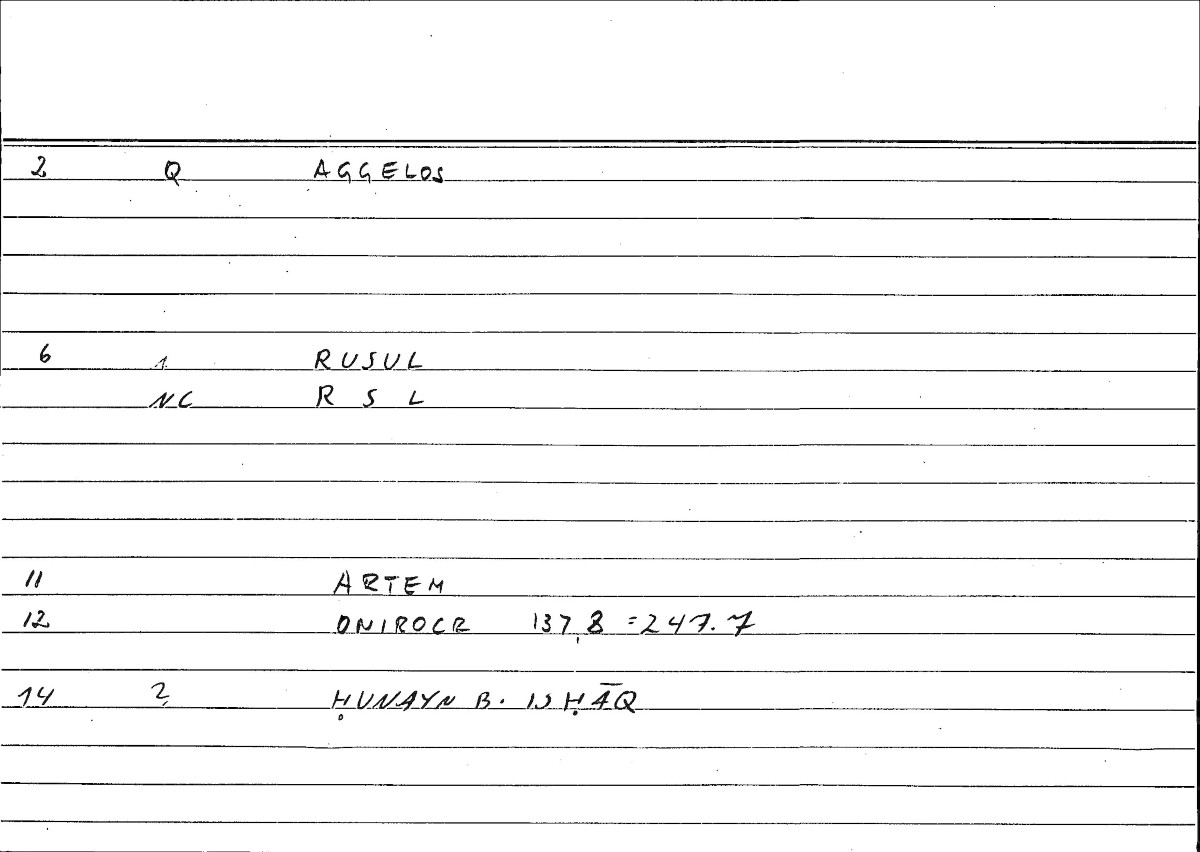 2 Q AGGELOS
6 1 RUSUL
NC R S L
11 ARTEM
12 ONIROCR 137,8 = 247.7
14 2 ḤUNAYN B. ISḤĀQ